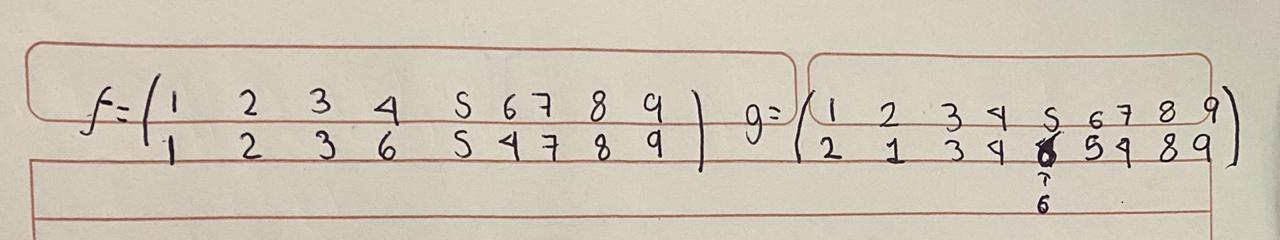 f=( 1 2 3 4 5 6 7 8 9 ) g=( 1 2 3 4 5 6 7 8 9 )
1 2 3 6 5 4 7 8 9 2 1 3 4 6 5 4 8 9
↑
6